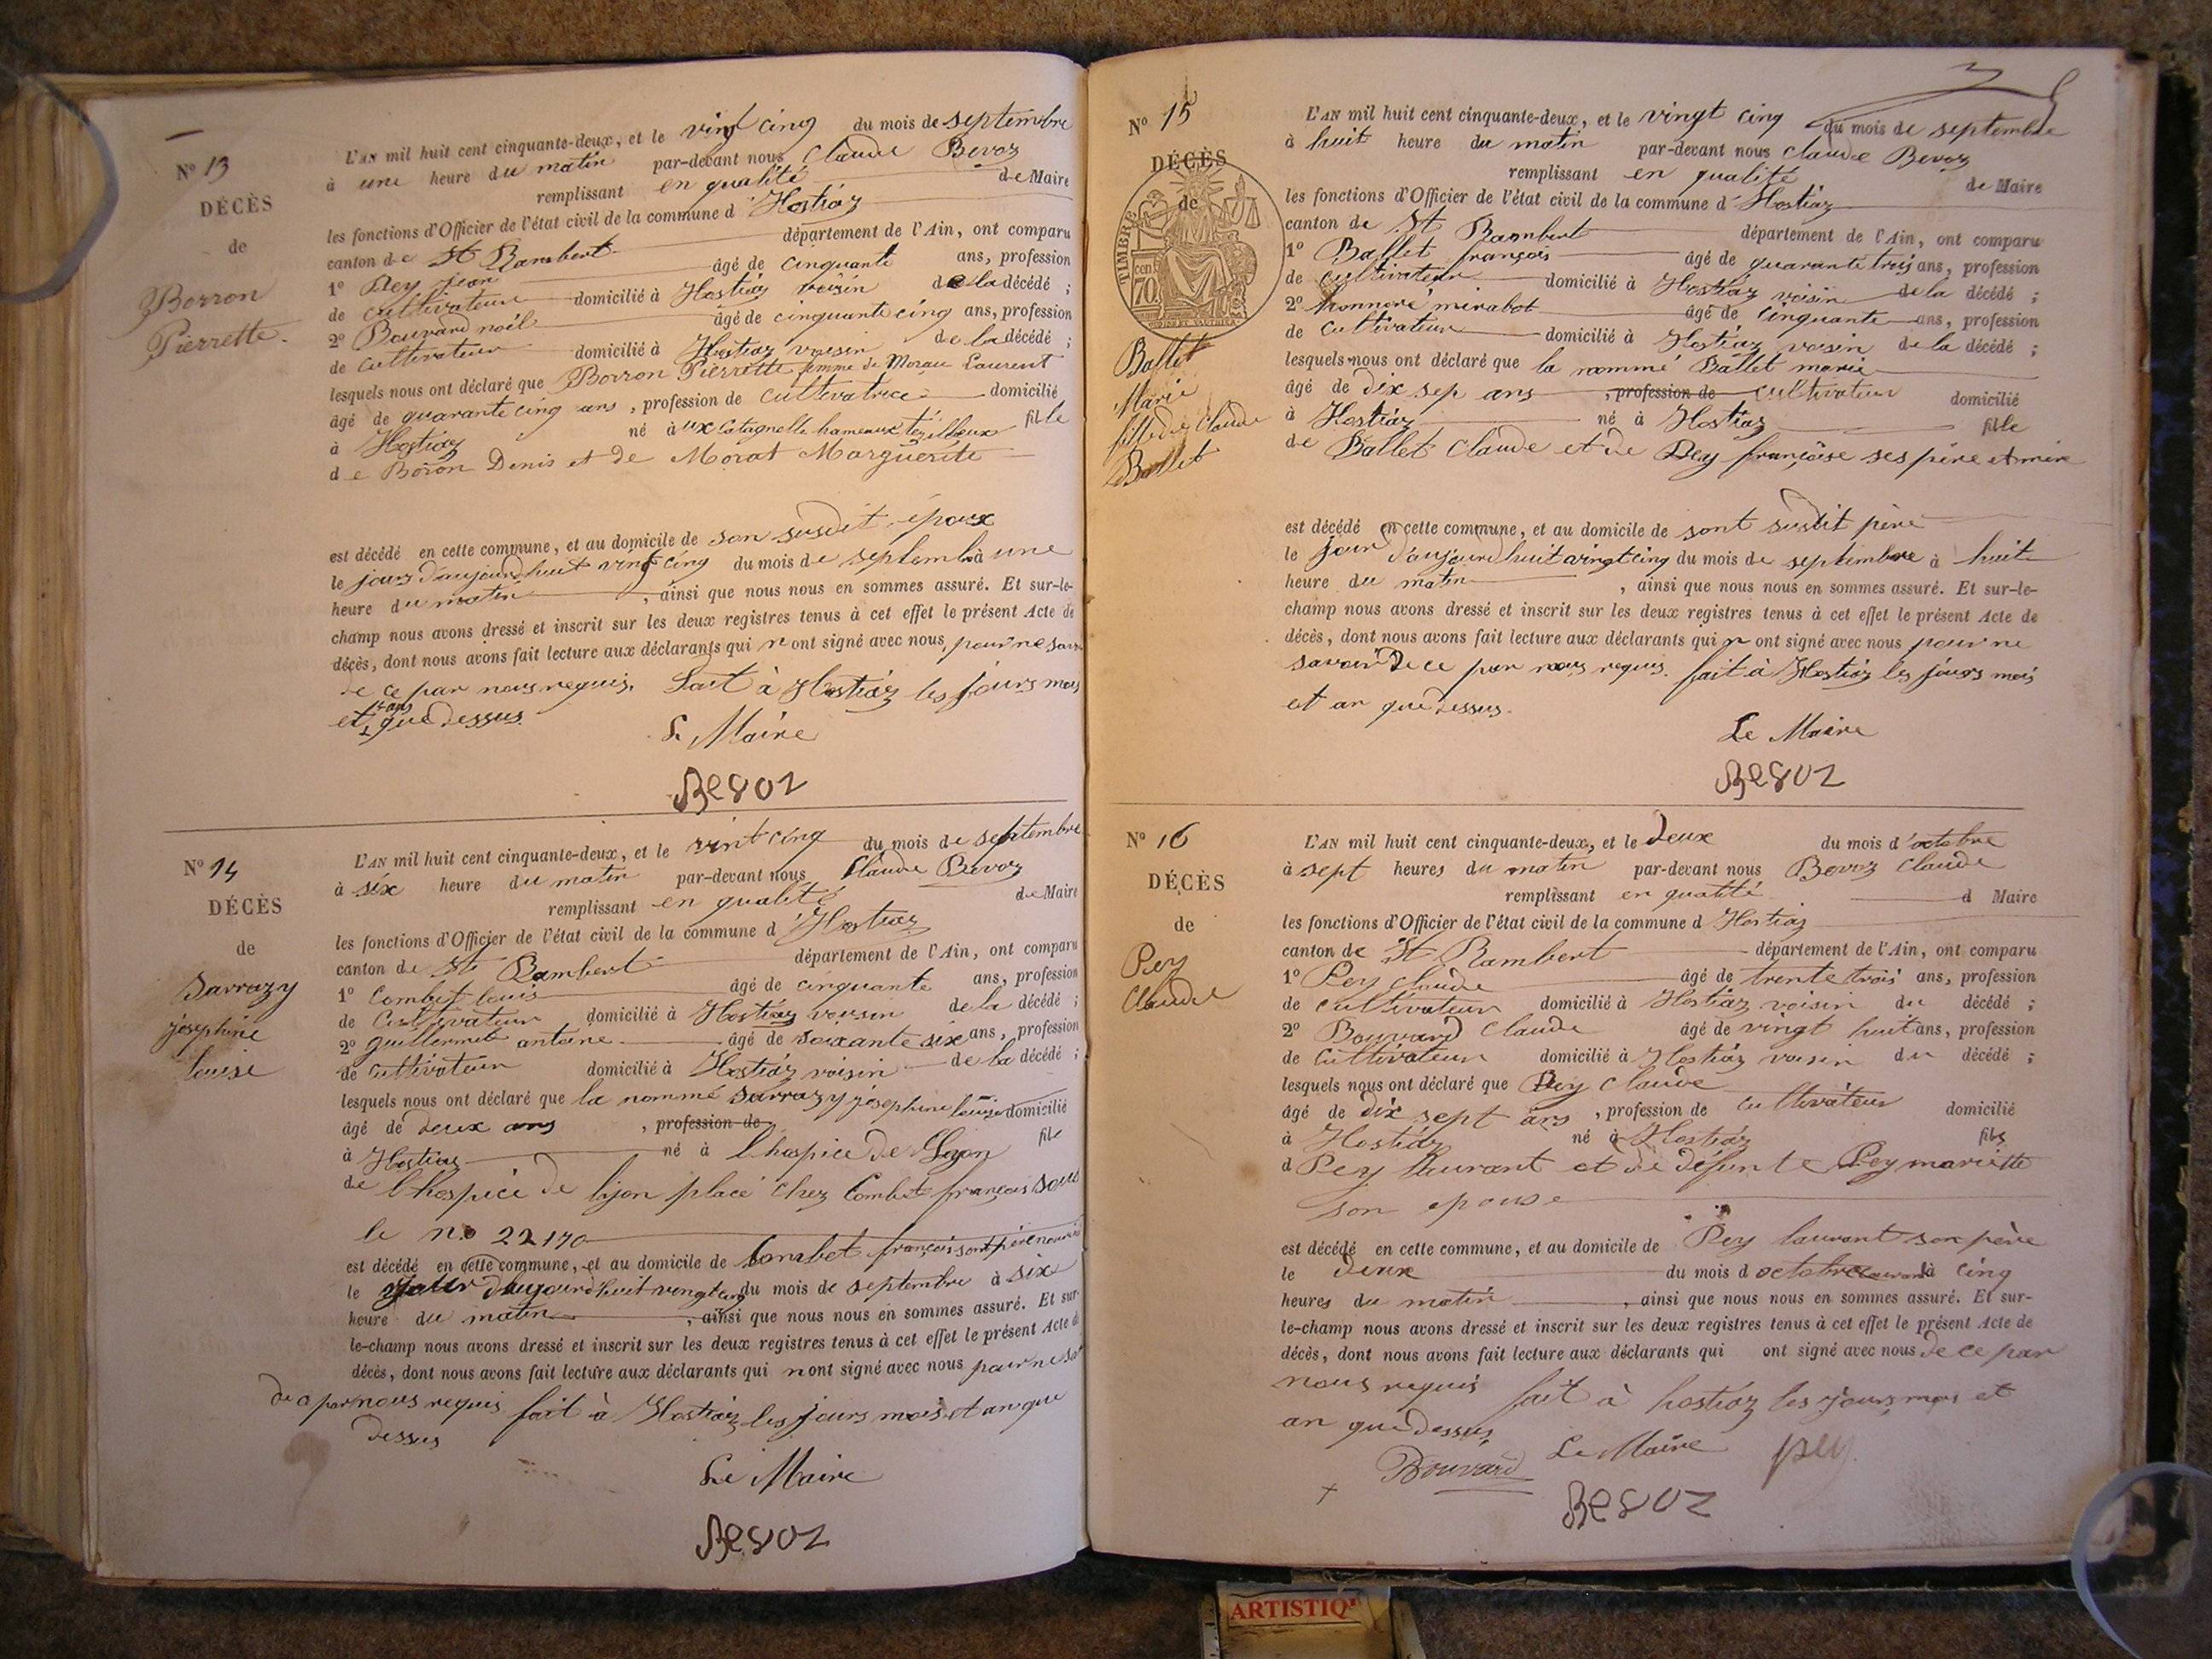 N° 13
DÉCÈS
de
Borron
Pierrette.
L'AN mil huit cent cinquante-deux, et le vingt cinq du mois de septembre
à une heure du matin par-devant nous Claude Bevoz
remplissant en qualité de Maire
les fonctions d'Officier de l'état civil de la commune d'Hostiaz
canton de St Rambert département de l'Ain, ont comparu
1° Pey jean âgé de cinquante ans, profession
de cultivateur domicilié à Hostiaz voisin de la décédé ;
2° Bouvard noël âgé de cinquante cinq ans, profession
de cultivateur domicilié à Hostiaz voisin de la décédé ;
lesquels nous ont déclaré que Borron Pierrette femme de Laurent
âgé de quarante cinq ans, profession de cultivatrice domicilié
à Hostiaz né à ux hameaux fille
de Boron Denis et de Morat Marguerite
est décédé en cette commune, et au domicile de son susdit époux
le jours d'aujourdhuit vingt cinq du mois de septembre à une
heure du matin, ainsi que nous nous en sommes assuré. Et sur-le-
champ nous avons dressé et inscrit sur les deux registres tenus à cet effet le présent Acte de
décès, dont nous avons fait lecture aux déclarants qui n'ont signé avec nous, pour ne
de ce par nous requis. Fait à Hostiaz les jours mois
et ans que dessus.
Le Maire
Bevoz
N° 14
DÉCÈS
de
Sarrazy
josephine
louise
L'AN mil huit cent cinquante-deux, et le vint cinq du mois de septembre
à six heure du matin par-devant nous Claude Bevoz
remplissant en qualité de Maire
les fonctions d'Officier de l'état civil de la commune d'Hostiaz
canton de St Rambert département de l'Ain, ont comparu
1° Combet louis âgé de cinquante ans, profession
de Cultivateur domicilié à Hostiaz voisin de la décédé ;
2° guillermet antoine âgé de soixante six ans, profession
de cultivateur domicilié à Hostiaz voisin de la décédé ;
lesquels nous ont déclaré que la nommé Sarrazy josephine louise domicilié
âgé de deux ans, profession de
à Hostiaz né à l'hospice de Lyon fille
de l'hospice de lijon placé chez Combet françois sous
le n° 22170
est décédé en cette commune, et au domicile de Combet françois sont père nourricier
le jour d'aujourdhuit vingt cinq du mois de septembre à six
heure du matin, ainsi que nous nous en sommes assuré. Et sur-
le-champ nous avons dressé et inscrit sur les deux registres tenus à cet effet le présent Acte de
décès, dont nous avons fait lecture aux déclarants qui n'ont signé avec nous pour ne
par nous requis fait à Hostiaz les jours mois et an que
dessus
Le Maire
Bevoz
N° 15
DÉCÈS
de
TIMBRE
70 cent
Ballet
Marie
fille de Claude
Ballet
L'AN mil huit cent cinquante-deux, et le vingt cinq du mois de septembre
à huit heure du matin par-devant nous Claude Bevoz
remplissant en qualité de Maire
les fonctions d'Officier de l'état civil de la commune d'Hostiaz
canton de St Rambert département de l'Ain, ont comparu
1° Ballet françois âgé de quarante trois ans, profession
de cultivateur domicilié à Hostiaz voisin de la décédé ;
2° honnoré mirabot âgé de cinquante ans, profession
de cultivateur domicilié à Hostiaz voisin de la décédé ;
lesquels nous ont déclaré que la nommé Ballet marie
âgé de dix sep ans, profession de cultivateur domicilié
à Hostiaz né à Hostiaz fille
de Ballet Claude et de Pey françoise ses père et mère
est décédé en cette commune, et au domicile de sont susdit père
le jour d'aujourdhuit vingt cinq du mois de septembre à huit
heure du matin, ainsi que nous nous en sommes assuré. Et sur-le-
champ nous avons dressé et inscrit sur les deux registres tenus à cet effet le présent Acte de
décès, dont nous avons fait lecture aux déclarants qui n'ont signé avec nous pour ne
savoir de ce par nous requis. fait à Hostiaz les jours mois
et an que dessus.
Le Maire
Bevoz
N° 16
DÉCÈS
de
Pey
Claude
L'AN mil huit cent cinquante-deux, et le deux du mois d'octobre
à sept heures du matin par-devant nous Bevoz Claude
remplissant en qualité d Maire
les fonctions d'Officier de l'état civil de la commune d Hostiaz
canton de St Rambert département de l'Ain, ont comparu
1° Pey claude âgé de trente trois ans, profession
de cultivateur domicilié à Hostiaz voisin du décédé ;
2° Bouvard Claude âgé de vingt huit ans, profession
de Cultivateur domicilié à Hostiaz voisin du décédé ;
lesquels nous ont déclaré que Pey claude
âgé de dix sept ans, profession de cultivateur domicilié
à Hostiaz né à Hostiaz fils
d Pey laurant et de défunte Pey mariette
son epouse
est décédé en cette commune, et au domicile de Pey laurant son père
le deux du mois d octobre à cinq
heures du matin, ainsi que nous nous en sommes assuré. Et sur-
le-champ nous avons dressé et inscrit sur les deux registres tenus à cet effet le présent Acte de
décès, dont nous avons fait lecture aux déclarants qui ont signé avec nous de ce par
nous requis fait à hostiaz les jours, mois et
an que dessus,
Bouvard Le Maire pey
Bevoz
ARTISTIQ